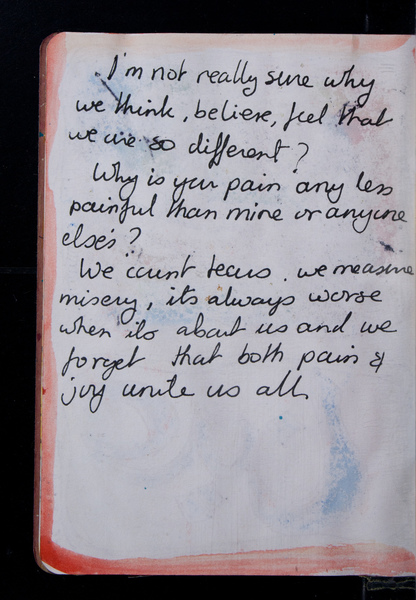 I'm not really sure why
we think, believe, feel that
we are so different?
Why is your pain any less
painful than mine or anyone
else's?
We count tears, we measure
misery, its always worse
when its about us and we
forget that both pain &
joy unite us all.